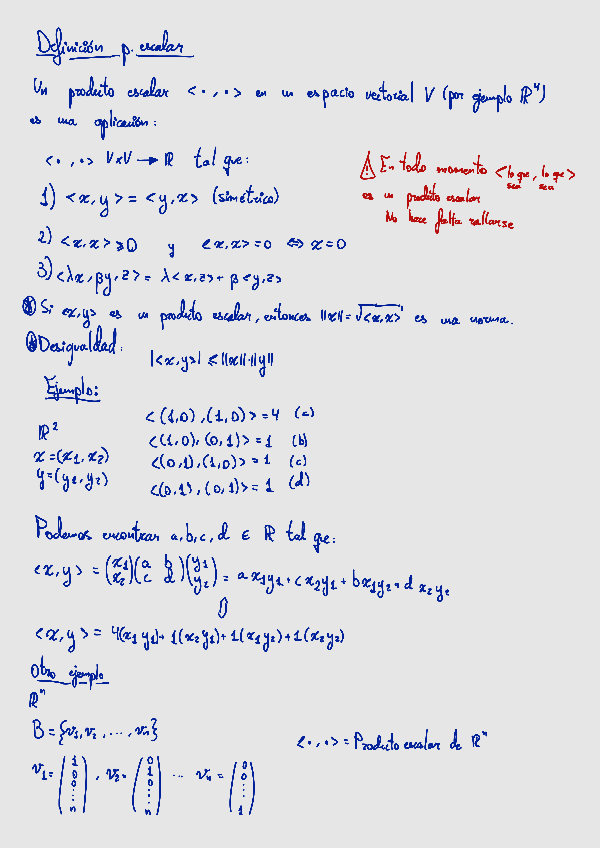 Definición p. escalar
Un producto escalar <·,·> en un espacio vectorial V (por ejemplo ℝ^n)
es una aplicación:
<·,·> V×V → ℝ tal que:
⚠ En todo momento <lo que sea, lo que sea>
es un producto escalar
No hace falta rallarse
1) <x,y> = <y,x> (simétrico)
2) <x,x> ≥ 0 y <x,x> = 0 ⇔ x = 0
3) <λx, βy, z> = λ<x,z> + β<y,z>
⊛ Si <x,y> es un producto escalar, entonces ||x|| = √<x,x> es una norma.
⊛ Desigualdad:
|<x,y>| ≤ ||x||·||y||
Ejemplo:
ℝ²
x = (x₁, x₂)
y = (y₁, y₂)
<(1,0),(1,0)> = 4 (a)
<(1,0),(0,1)> = 1 (b)
<(0,1),(1,0)> = 1 (c)
<(0,1),(0,1)> = 1 (d)
Podemos encontrar a,b,c,d ∈ ℝ tal que:
<x,y> = (x₁ x₂)(a b c d)(y₁ y₂) = a x₁y₁ + c x₂y₁ + b x₁y₂ + d x₂y₂
⇓
<x,y> = 4(x₁y₁) + 1(x₂y₁) + 1(x₁y₂) + 1(x₂y₂)
Otro ejemplo
ℝⁿ
B = {v₁, v₂, ..., vₙ}
<·,·> = Producto escalar de ℝⁿ
v₁ = (1 0 0 ... n), v₂ = (0 1 0 ... n) ... vₙ = (0 0 ... 1)